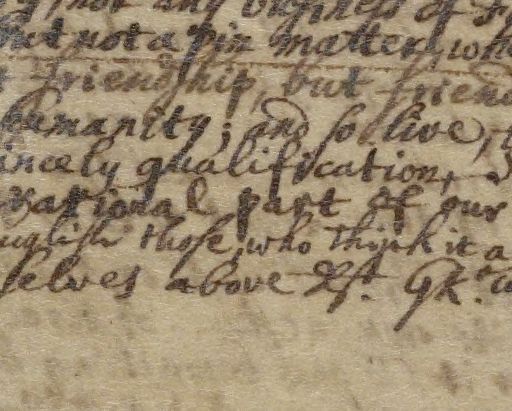 not any business of
but not a pin matter, who
friendship, but friend
humanity; and so live,
incely qualification,
rational part of our
those, who think it a
selves above